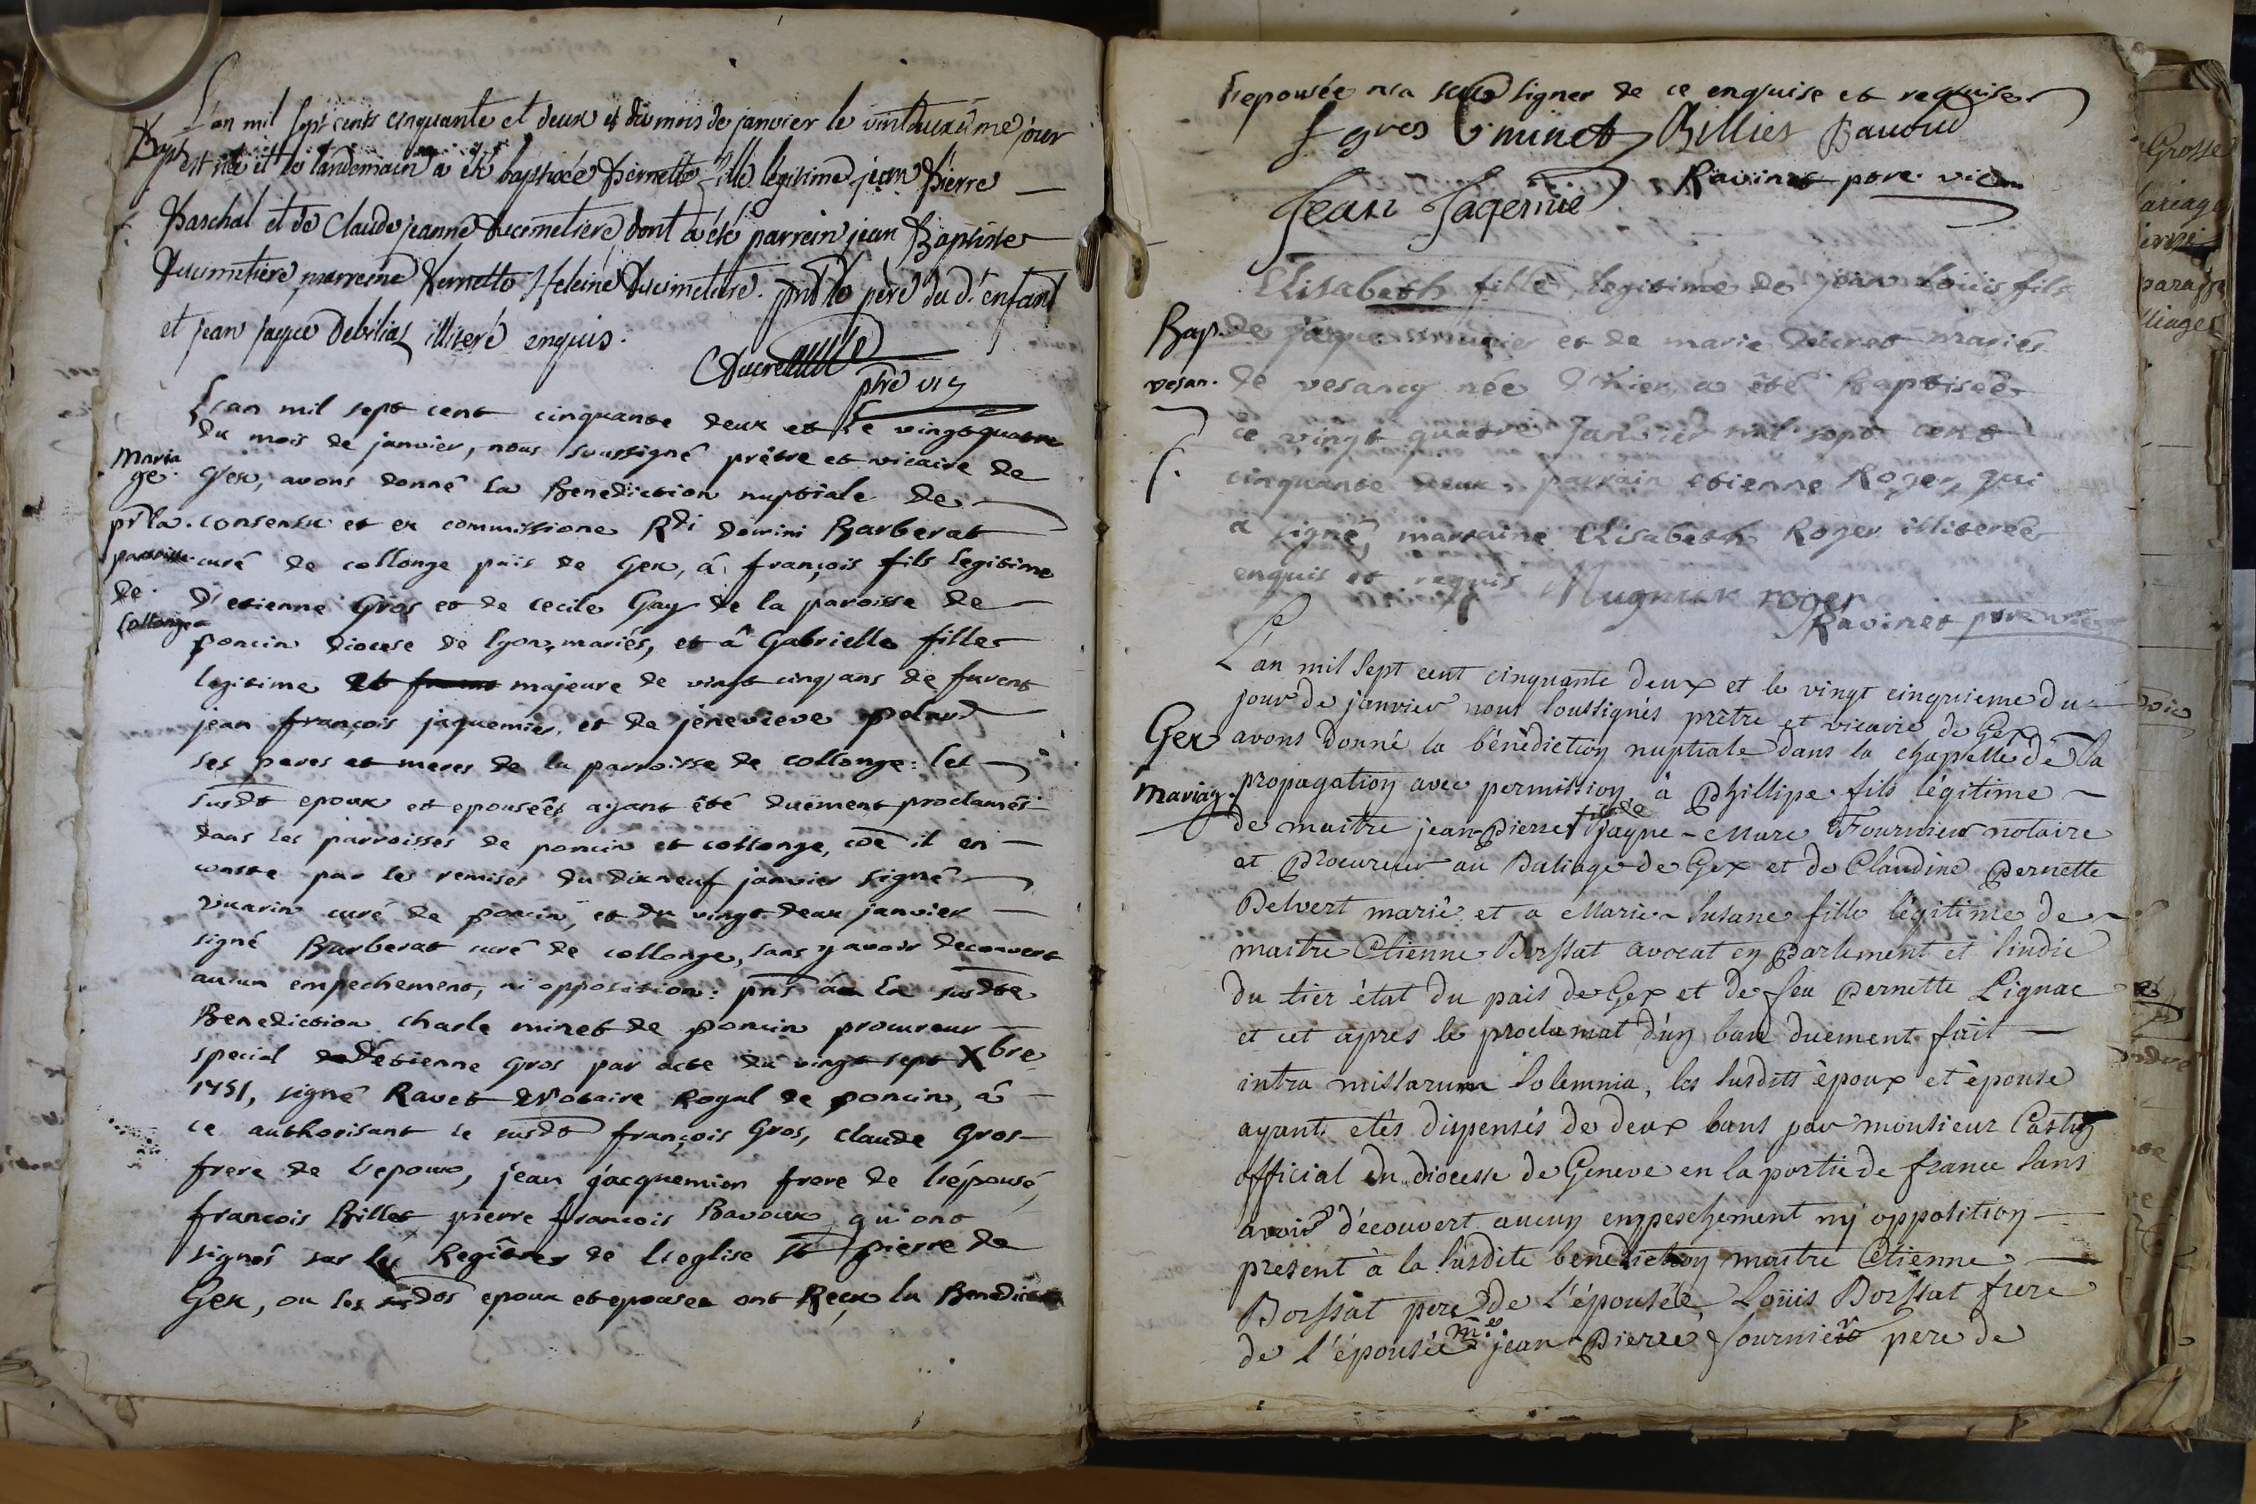 L'an mil sept cents cinquante et deux et du mois de janvier le vintdeuxième jour
Bapt. est née et le landemain a été baptisée Pernette fille légitime jean Pierre
Paschal et de Claude jeanne Ducimetiere dont a été parrein jean Baptiste
Ducimetière, marreine Pernette Heleine Ducimetiere. pnt le père du d. enfant
et jean jaque Debilias illiteré enquis.
ptre vic
L'an mil sept cent cinquante deux et le vingt quatre
du mois de janvier, nous soussigné prêtre et vicaire de
Maria
ge.
Gex, avons donné la Benediction nuptiale de
pr la. consensu et ex commissione Rdi domini Barberat
paroisse. curé de collonge païs de Gex, â françois fils legitime
de. d'etienne Gros et de cecile Gay de la paroisse de
Collonge
poncin diocese de lyon, mariés, et â Gabrielle fille
legitime majeure de vingt cinq ans de furent
jean françois jaquemier, et de jeneviève
ses peres et meres de la parroisse de collonge: les
susdts epoux et epousées ayant été duëment proclamés
dans les parroisses de poncin et collonge, coe il en
conste par les remises du dixneuf janvier signé
vuarin curé de poncin, et du vingt deux janvier
signé Barberat curé de collonge, sans y avoir decouvert
aucun empechement, ni opposition: pns â la susdte
Benediction charle minet de poncin procureur
special d'etienne Gros par acte du vingt sept Xbre
1751, signé Ravet Notaire Royal de poncin, â
ce authorisant le susdt françois Gros, Claude Gros
frere de l'epoux, jean jacquemier frere de l'épousé,
francois Billet, pierre francois Bavoux qu'ont
signés sur les Regîtres de l'eglise St pierre de
Gex, ou les susdts epoux et epousée ont Reçu la Benedict
l'epousée n'a sceu signer de ce enquise et requise
f gros C minet Billiet Bavoud
Ravinet ptre. vic
Jean Jaqemié
Elisabeth fille legitime de jean Loüis fils
Bap. de jaque et de marie ducret mariés
vesan. de vesancy née d'hier, a été Baptiseé
ce vingt quatre Janvier mil sept cent
cinquante deux. parrain etienne Roger, qui
à signé, marraine Elisabeth Roger illiterée
enquis et requis Mugnier roger
Ravinet ptre vic
L'an mil sept cent cinquante deux et le vingt cinquieme du
jour de janvier nous soussignés prêtre et vicaire de Gex
Gex avons donné la bénédiction nuptiale dans la chapelle de la
Mariag. propagation avec permission, à Phillipe fils légitime
de maitre jean-Pierre fils de jaque-Marc Fournier notaire
et Procureur au Baliage de Gex et de Claudine Pernette
Delvert marié et a Marie-Susane fille légitime de
maitre Etienne Borssat avocat en Parlement et sindic
du tier état du païs de Gex et de feu Pernette Lignac
et cet apres le proclamat d'un ban duement fait
intra missarum solemnia, les susdits époux et épouse
ayants étés dispensés de deux bans par monsieur Castin
official du diocesse de Geneve en la partie de france sans
avoir découvert aucun empeschement ny opposition
present à la susdite bénediction maitre Etienne
Borssat pere de l'épousée, Loüis Borssat frere
de l'épousée m.e jean-Pierre fournier pere de